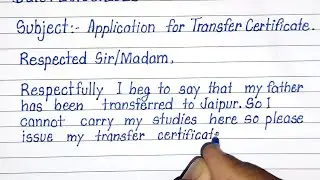 Subject:- Application for Transfer Certificate.
Respected Sir/Madam,
Respectfully I beg to say that my father
has been transferred to Jaipur. So I
cannot carry my studies here so please
issue my transfer certificate